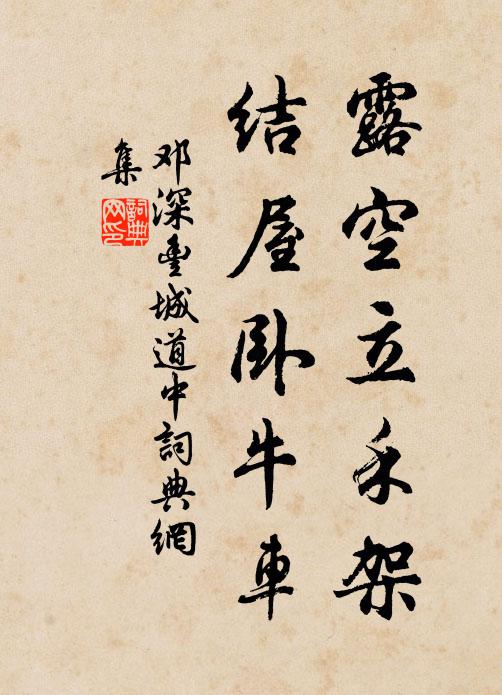 露空立禾架
结屋卧牛車
邓深豊城道中詞典網
集
詞典網印